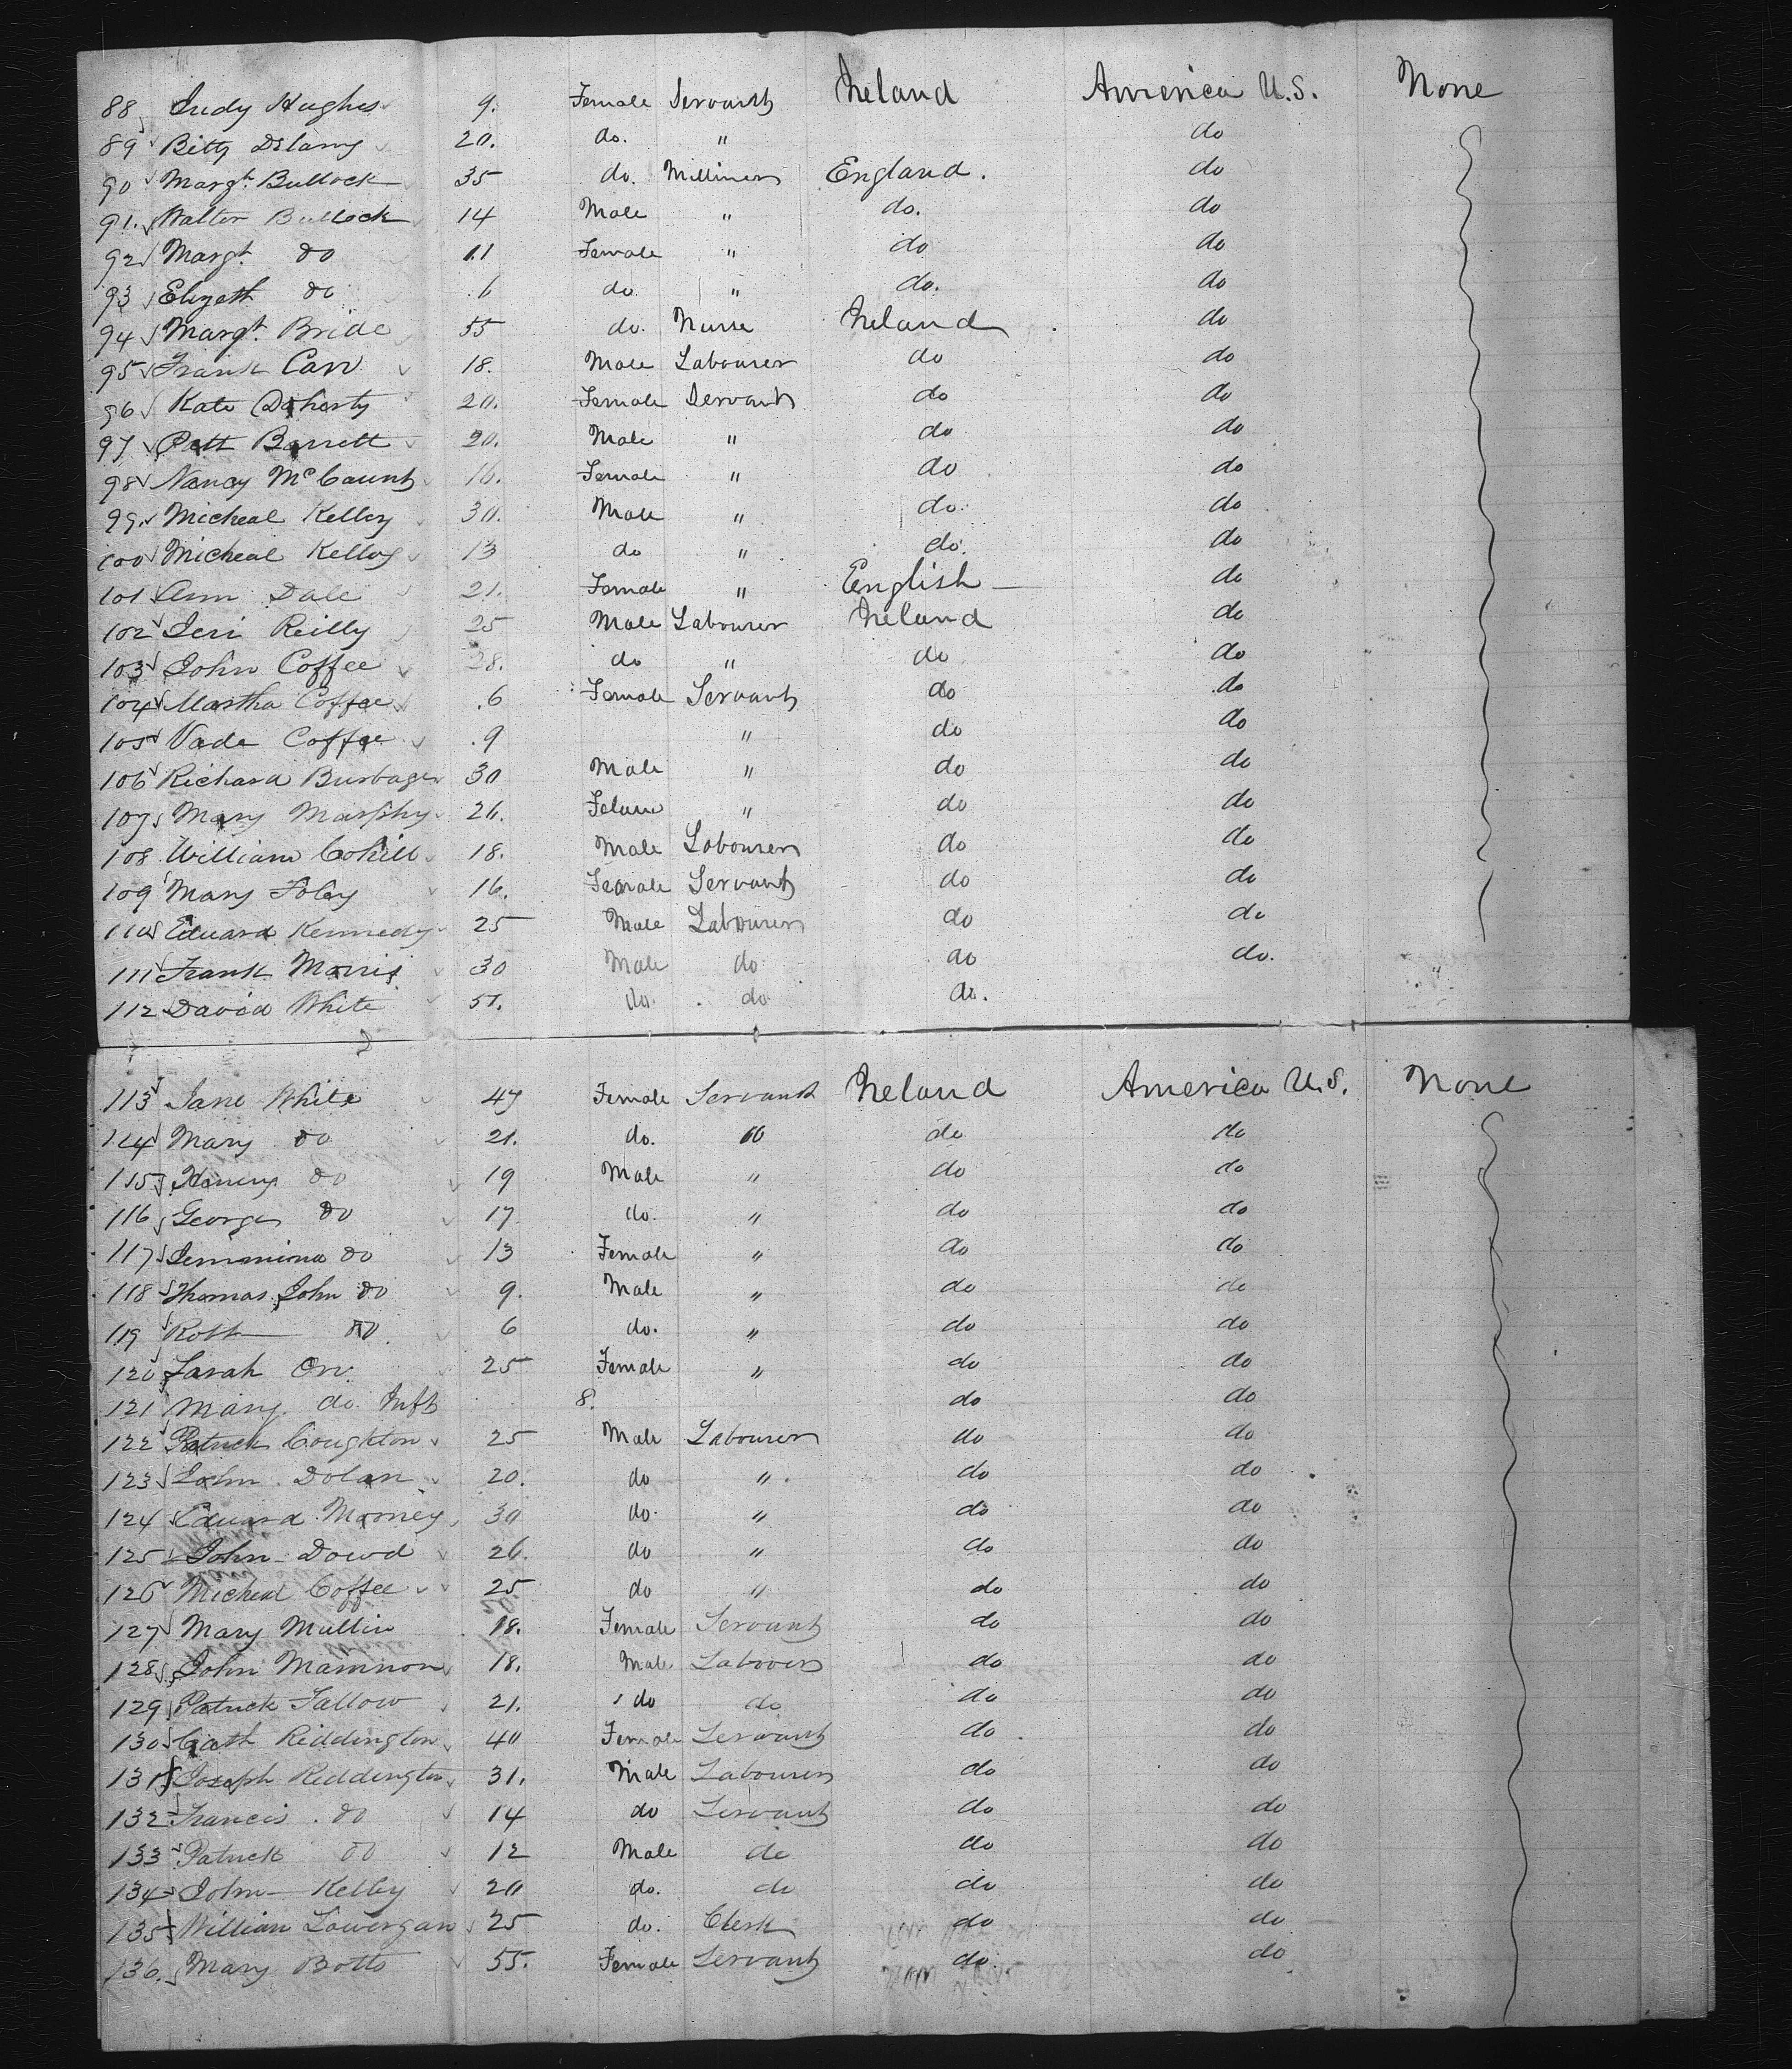 88 Judy Hughes 9. Female Servant Ireland America U.S. None
89 Bitty Delany 20. do. " do
90 Margt. Bullock 35 do. Milliner England. do
91. Walter Bullock 14 Male " do. do
92 Margt. do 11 Female " do do
93 Elizath do 6 do " do. do
94 Margt. Bride 55 do. Nurse Ireland do
95 Frank Carr 18. Male Labourer do do
96 Kate Doherty 20. Female Servant do do
97 Patt Barrett 20. Male " do do
98 Nancy McCaunt 16. Female " do do
99. Micheal Kelley 30. Male " do. do
100 Micheal Kelley 13 do " do. do
101 Ann Dale 21. Female " English do
102 Reilly 25 Male Labourer Ireland do
103 John Coffee 28. do " do do
104 Martha Coffee .6 Female Servant do do
105 Coffee .9 " do do
106 Richard Burbage 30 Male " do do
107 Mary Murphy 26. Felame " do do
108 William Cohill 18. Male Labourer do do
109 Mary Foley 16. Female Servant do do
110 Edward Kennedy 25 Male Labourer do do
111 Frank Morris 30 Male do do do.
112 David White 51. do. do do.
113 Jane White 47 Female Servant Ireland America U.S. None
114 Mary do 21. do. do do do
115 Henery do 19 Male " do do
116 George do 17 do. " do do
117 Jemmima do 13 Female " do do
118 Thomas John do 9. Male " do do
119 Robt do. 6 do. " do do
120 Sarah Orr 25 Female " do do
121 Mary do Inft 8. do do
122 Patrick Coughton 25 Male Labourer do do
123 John Dolan 20. do " do do
124 Edward Morney 30 do. " do do
125 John Dowd 26. do " do do
126 Micheal Coffee 25 do " do do
127 Mary Mullin 18. Female Servant do do
128 John Mannion 18. Male Labourer do do
129 Patrick Fallow 21. do do do do
130 Cath Riddington 40 Female Servant do do
131 Joseph Riddington 31. Male Labourer do do
132 Francis do 14 do Servant do do
133 Patrick do 12 Male do do do
134 John Kelley 20 do. do do do
135 William Lowergan 25 do. Clerk do do
136. Mary Botts 55. Female Servant do do